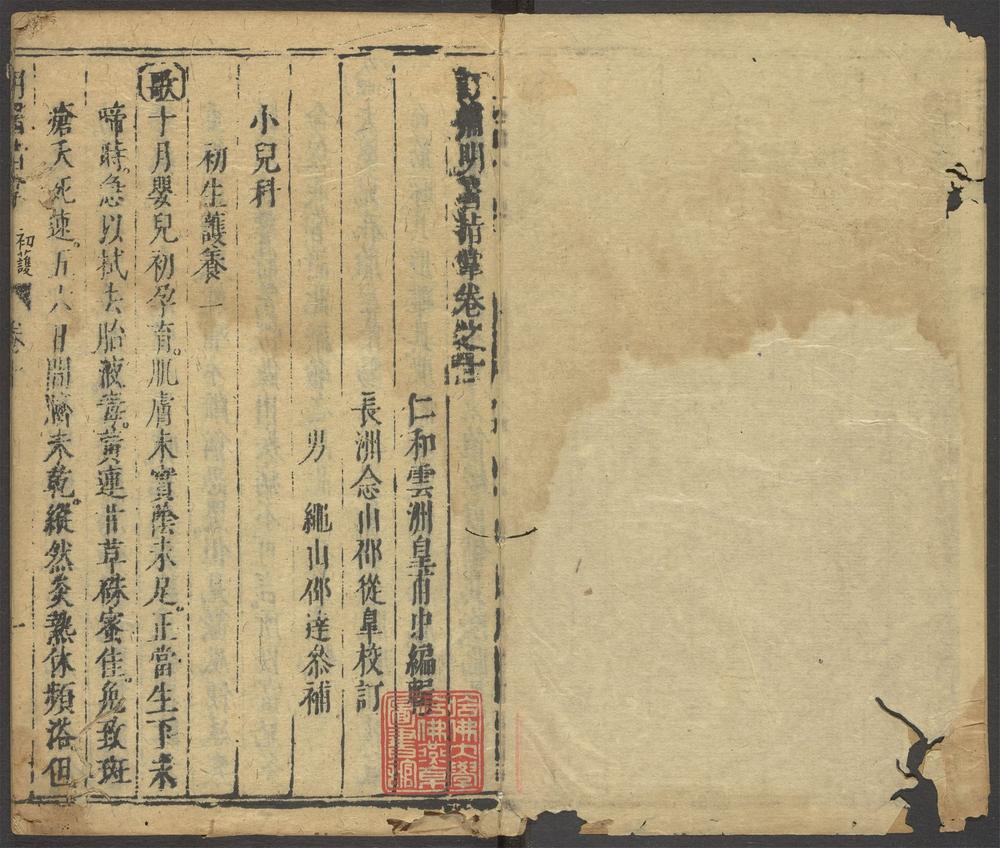 訂補明醫指掌卷之十
仁和雲洲皇甫中編輯
長洲念山邵從臯校訂
男　繩山邵達叅補
小兒科
初生護養一
歌十月嬰兒初孕育。肌膚未實陰未足。正當生下未
啼時。急以拭去胎液毒。黃連甘草硃蜜佳。免致斑
瘡夭死速。五六日間臍未乾。縱然炎熱休頻浴但
初護
卷十
哈佛大學
哈佛燕京
圖書館